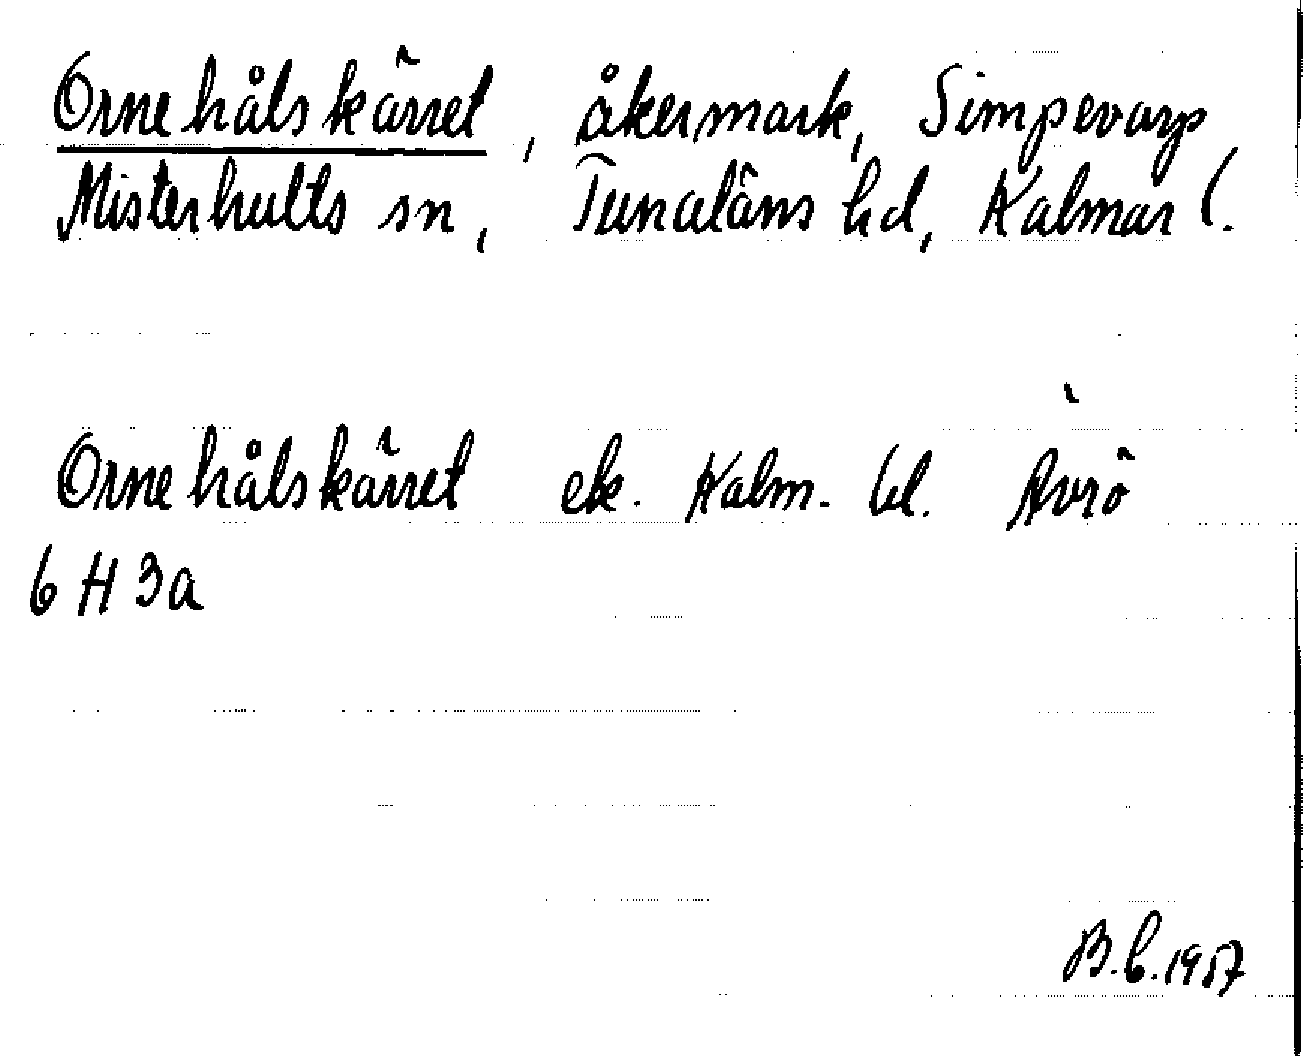 Ornehålskärret, åkermark, Simpevarp
Misterhults sn, Tunaläns hd, Kalmar l.
Ornehålskärret ek. Kalm. bl. Ävrö
6 H 3a
B.b. 1957